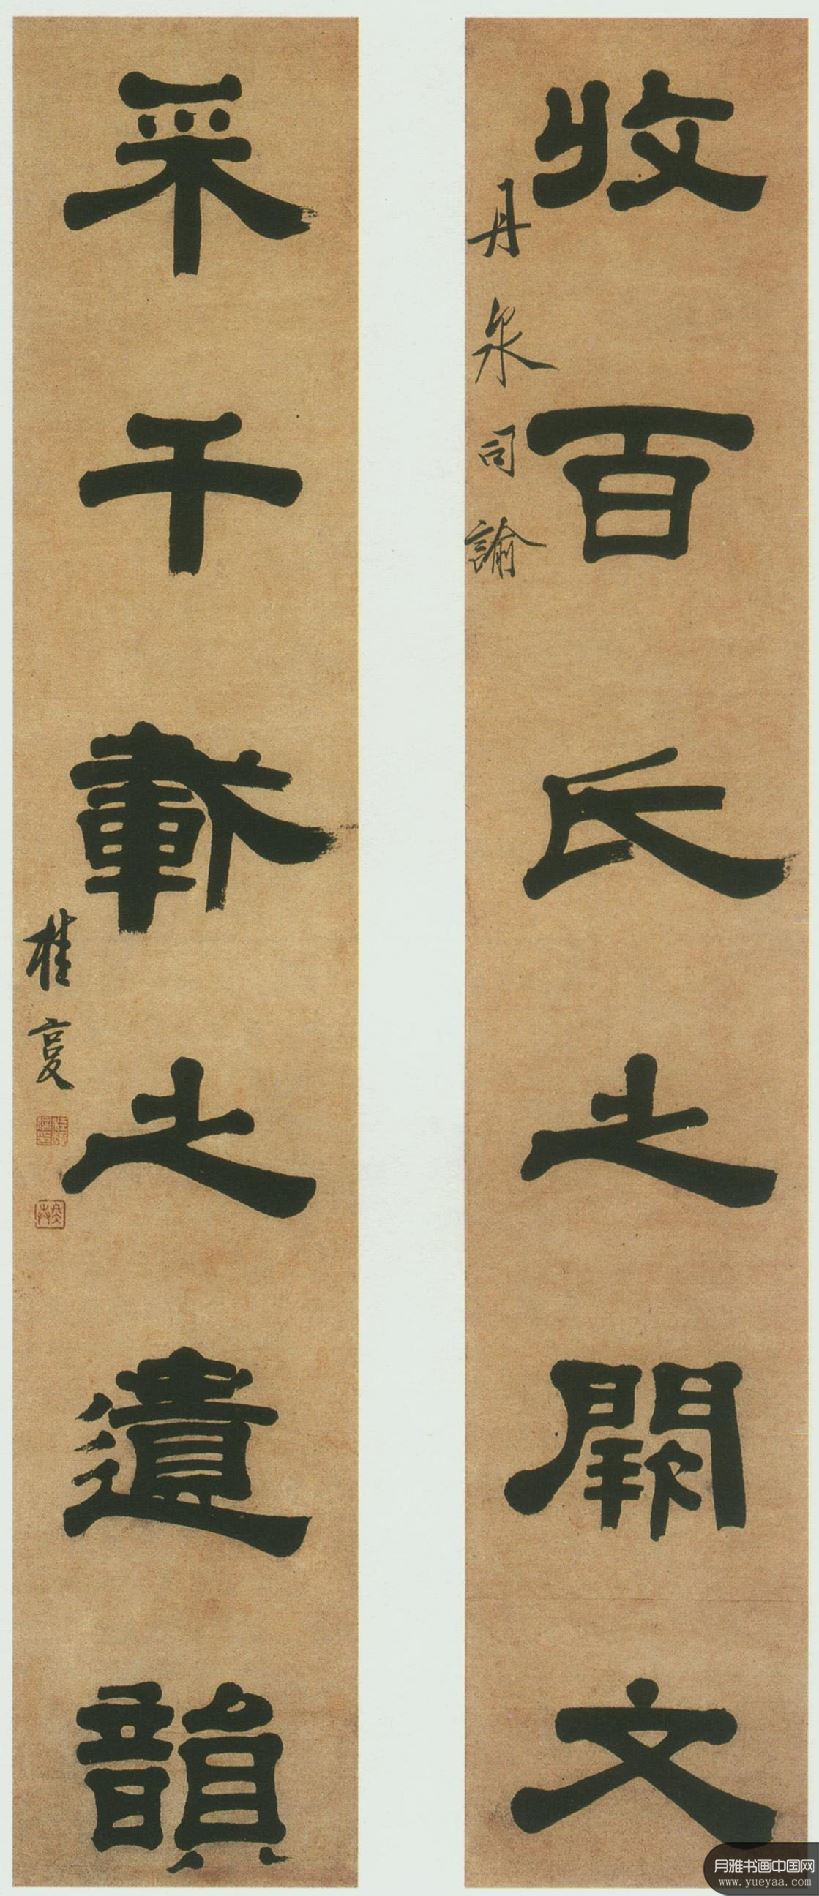 收百氏之闕文
丹泉司諭
采千載之遺韻
桂复
月雅书画中国网
www.yueyaa.com